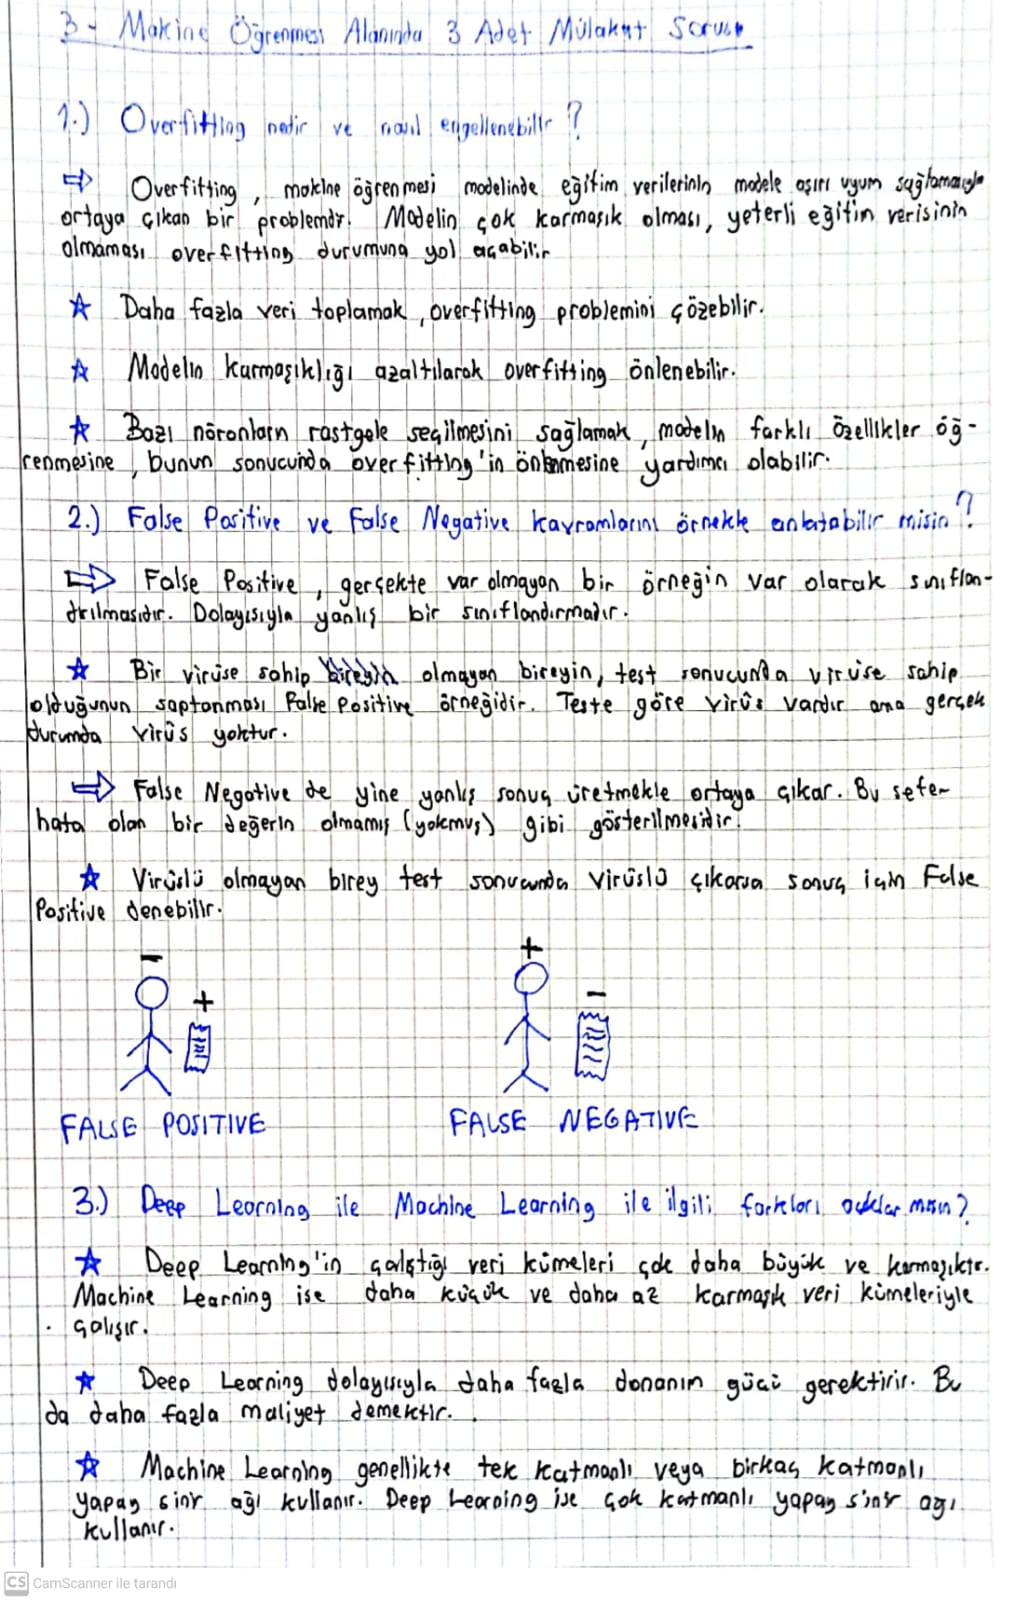 3- Makine Öğrenmesi Alanında 3 Adet Mülakat Sorusu
1.) Overfitting nedir ve nasıl engellenebilir ?
⇨ Overfitting , makine öğrenmesi modelinde eğitim verilerinin modele aşırı uyum sağlamasıyla
ortaya çıkan bir problemdir. Modelin çok karmaşık olması, yeterli eğitim verisinin
olmaması overfitting durumuna yol açabilir
☆ Daha fazla veri toplamak , overfitting problemini çözebilir.
☆ Modelin karmaşıklığı azaltılarak overfitting önlenebilir.
☆ Bazı nöronların rastgele seçilmesini sağlamak, modelin farklı özellikler öğ-
renmesine , bunun sonucunda overfitting'in önlenmesine yardımcı olabilir.
2.) False Positive ve False Negative kavramlarını örnekle anlatabilir misin ?
⇨ False Positive , gerçekte var olmayan bir örneğin var olarak sınıflan-
dırılmasıdır. Dolayısıyla yanlış bir sınıflandırmadır.
☆ Bir virüse sahip olmayan bireyin, test sonucunda virüse sahip
olduğunun saptanması False Positive örneğidir. Teste göre virüs vardır ama gerçek
durumda virüs yoktur.
⇨ False Negative de yine yanlış sonuç üretmekle ortaya çıkar. Bu sefer
hata olan bir değerin olmamış (yokmuş) gibi gösterilmesidir.
☆ Virüslü olmayan birey test sonucunda virüslü çıkarsa sonuç için False
Positive denebilir.
- +
+ -
FALSE POSITIVE FALSE NEGATIVE
3.) Deep Learning ile Machine Learning ile ilgili farkları açıklar mısın?
☆ Deep Learning'in çalıştığı veri kümeleri çok daha büyük ve karmaşıktır.
Machine Learning ise daha küçük ve daha az karmaşık veri kümeleriyle
çalışır.
☆ Deep Learning dolayısıyla daha fazla donanım gücü gerektirir. Bu
da daha fazla maliyet demektir.
☆ Machine Learning genellikte tek katmanlı veya birkaç katmanlı
yapay sinir ağı kullanır. Deep Learning ise çok katmanlı yapay sinir ağı
kullanır.
CS CamScanner ile tarandı